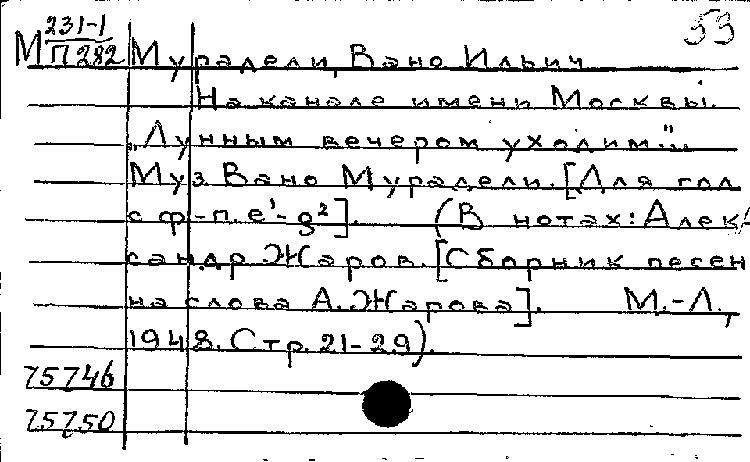 53
М 231-1
П 282
Мурадели, Вано Ильич
На канале имени Москвы.
"Лунным вечером уходим."..
Муз. Вано Мурадели. [Для гол.
с ф-п. e'-g²]. (В нотах: Алек-
сандр Жаров. [Сборник песен
на слова А. Жарова]. М.-Л.,
1948. Стр. 21-29).
75746
75750